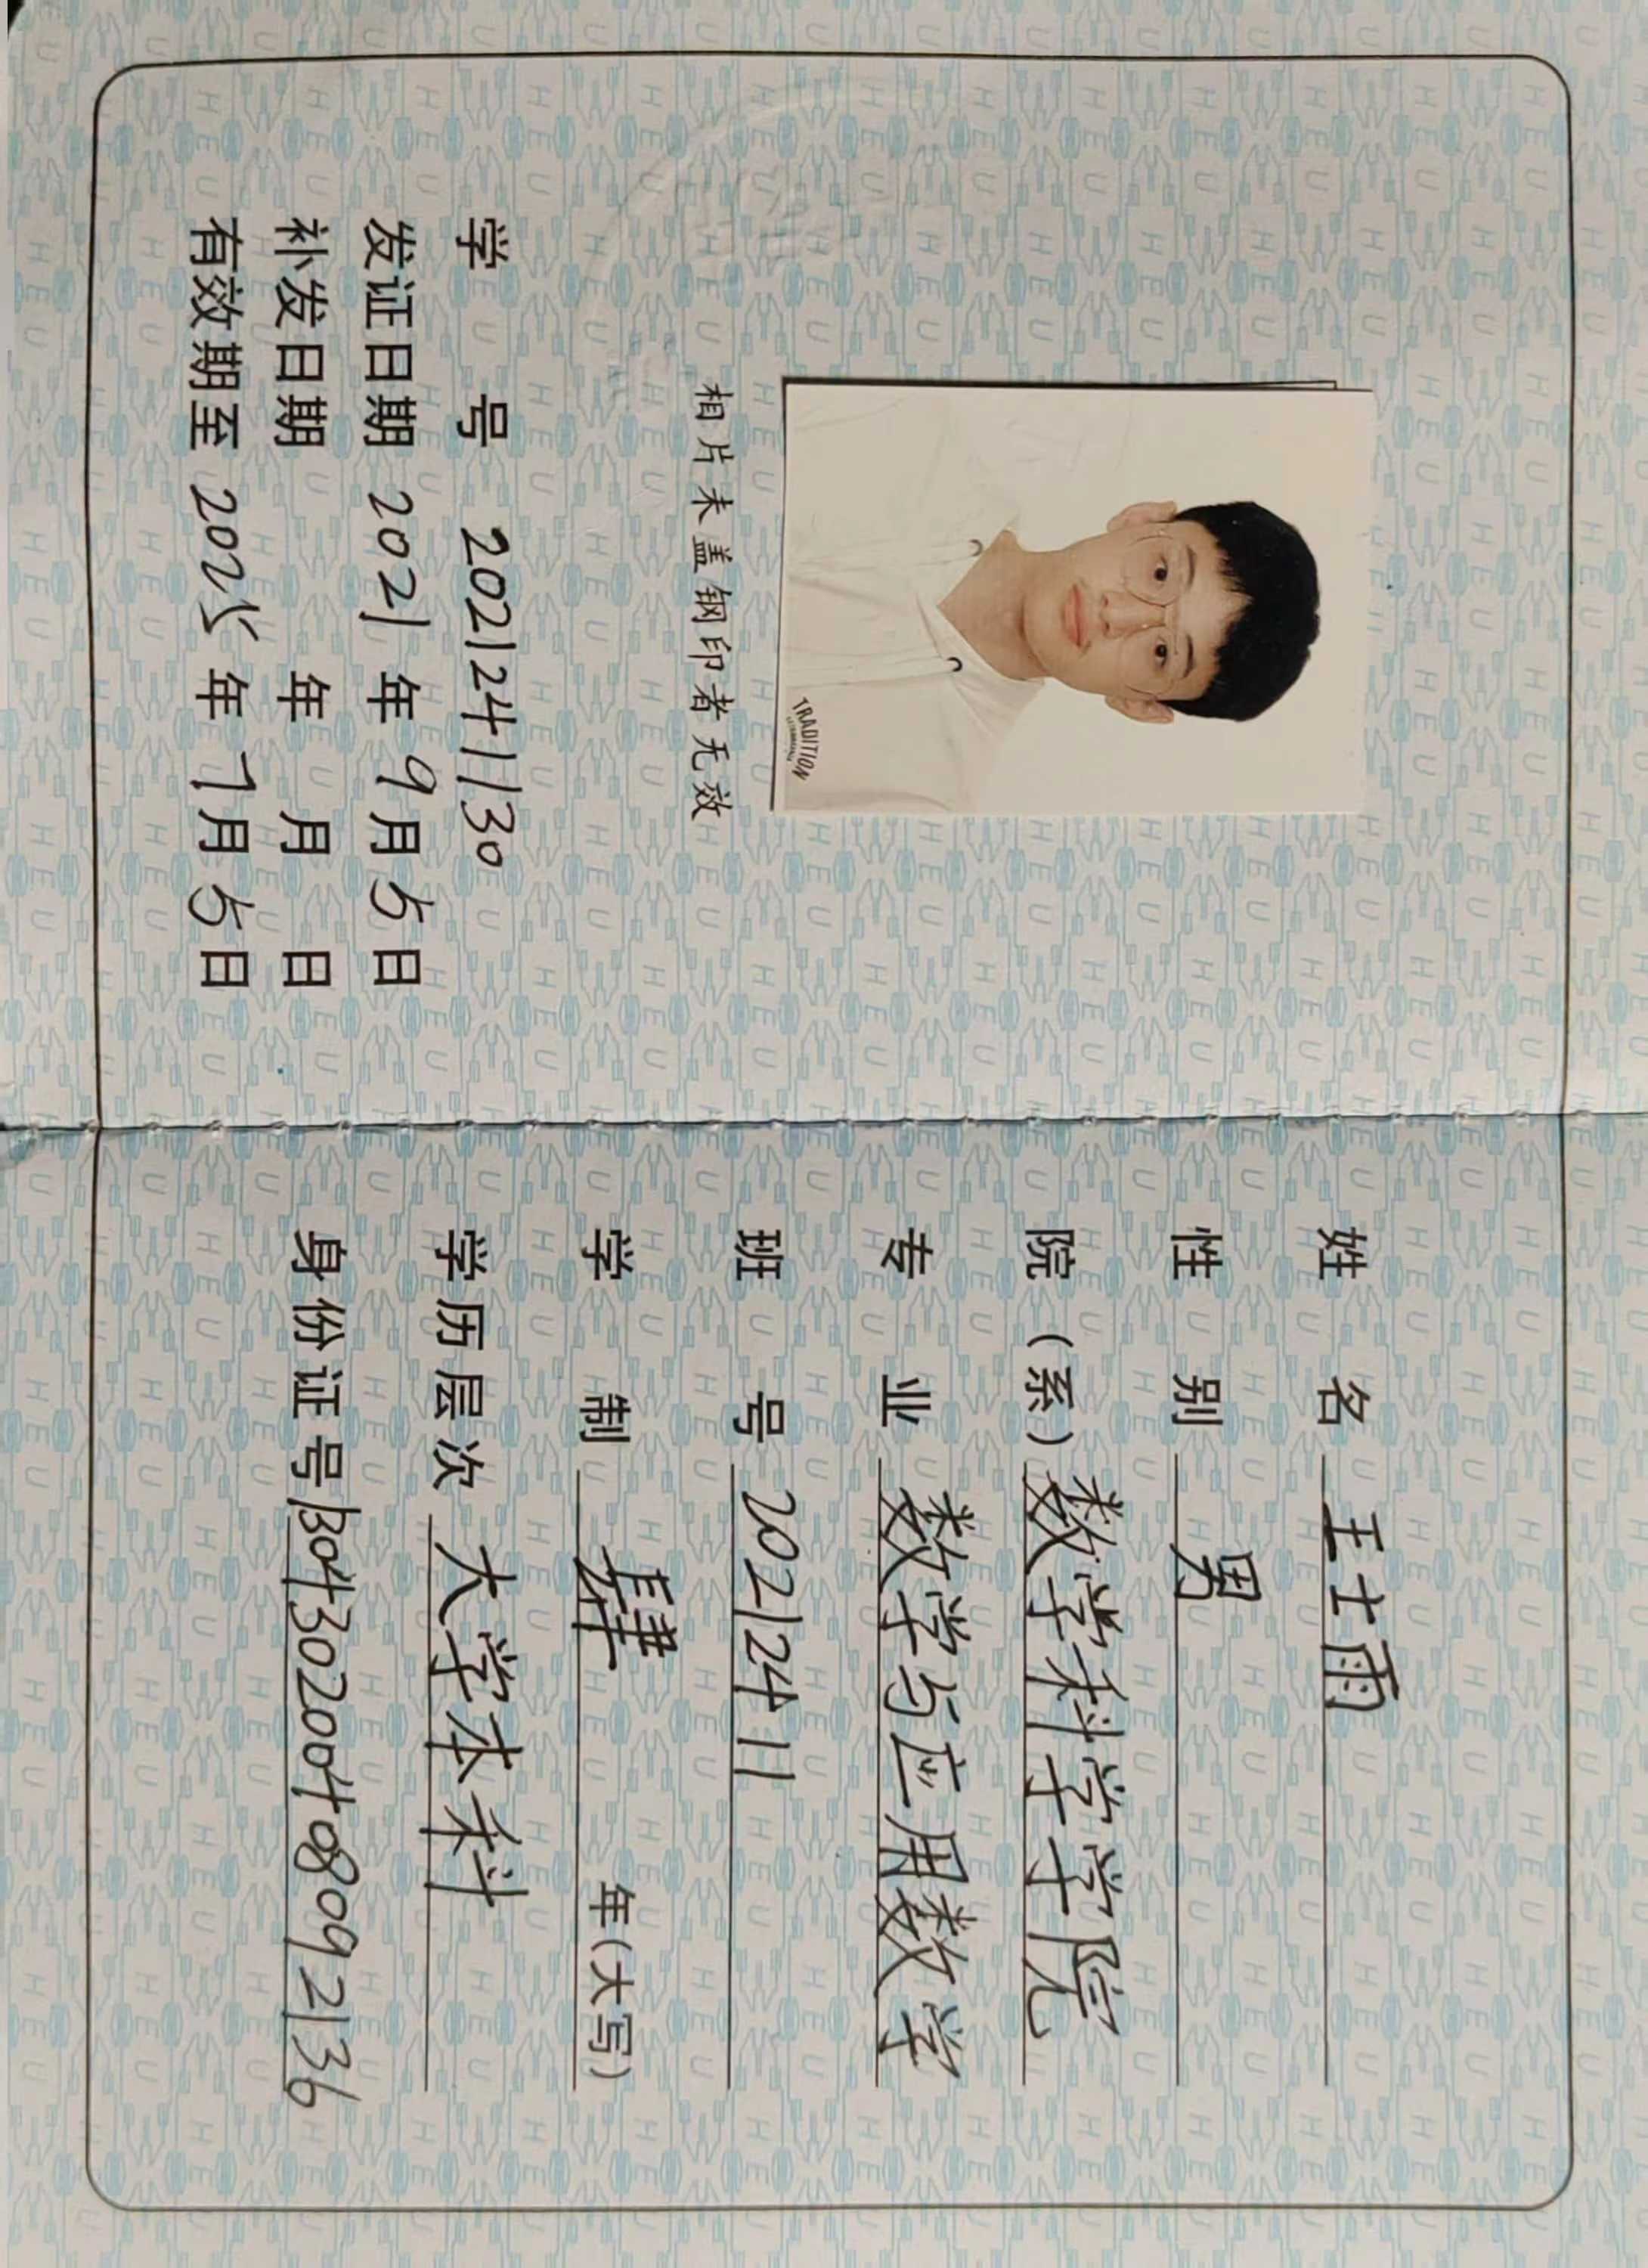 TRADITION
相片未盖钢印者无效
学号 2021241130
发证日期 2021年9月5日
补发日期 年 月 日
有效期至 2025年7月5日
姓名 王士雨
性别 男
院(系) 数学科学学院
专业 数学与应用数学
班号 20212411
学制 肆 年(大写)
学历层次 大学本科
身份证号 130430200408092136